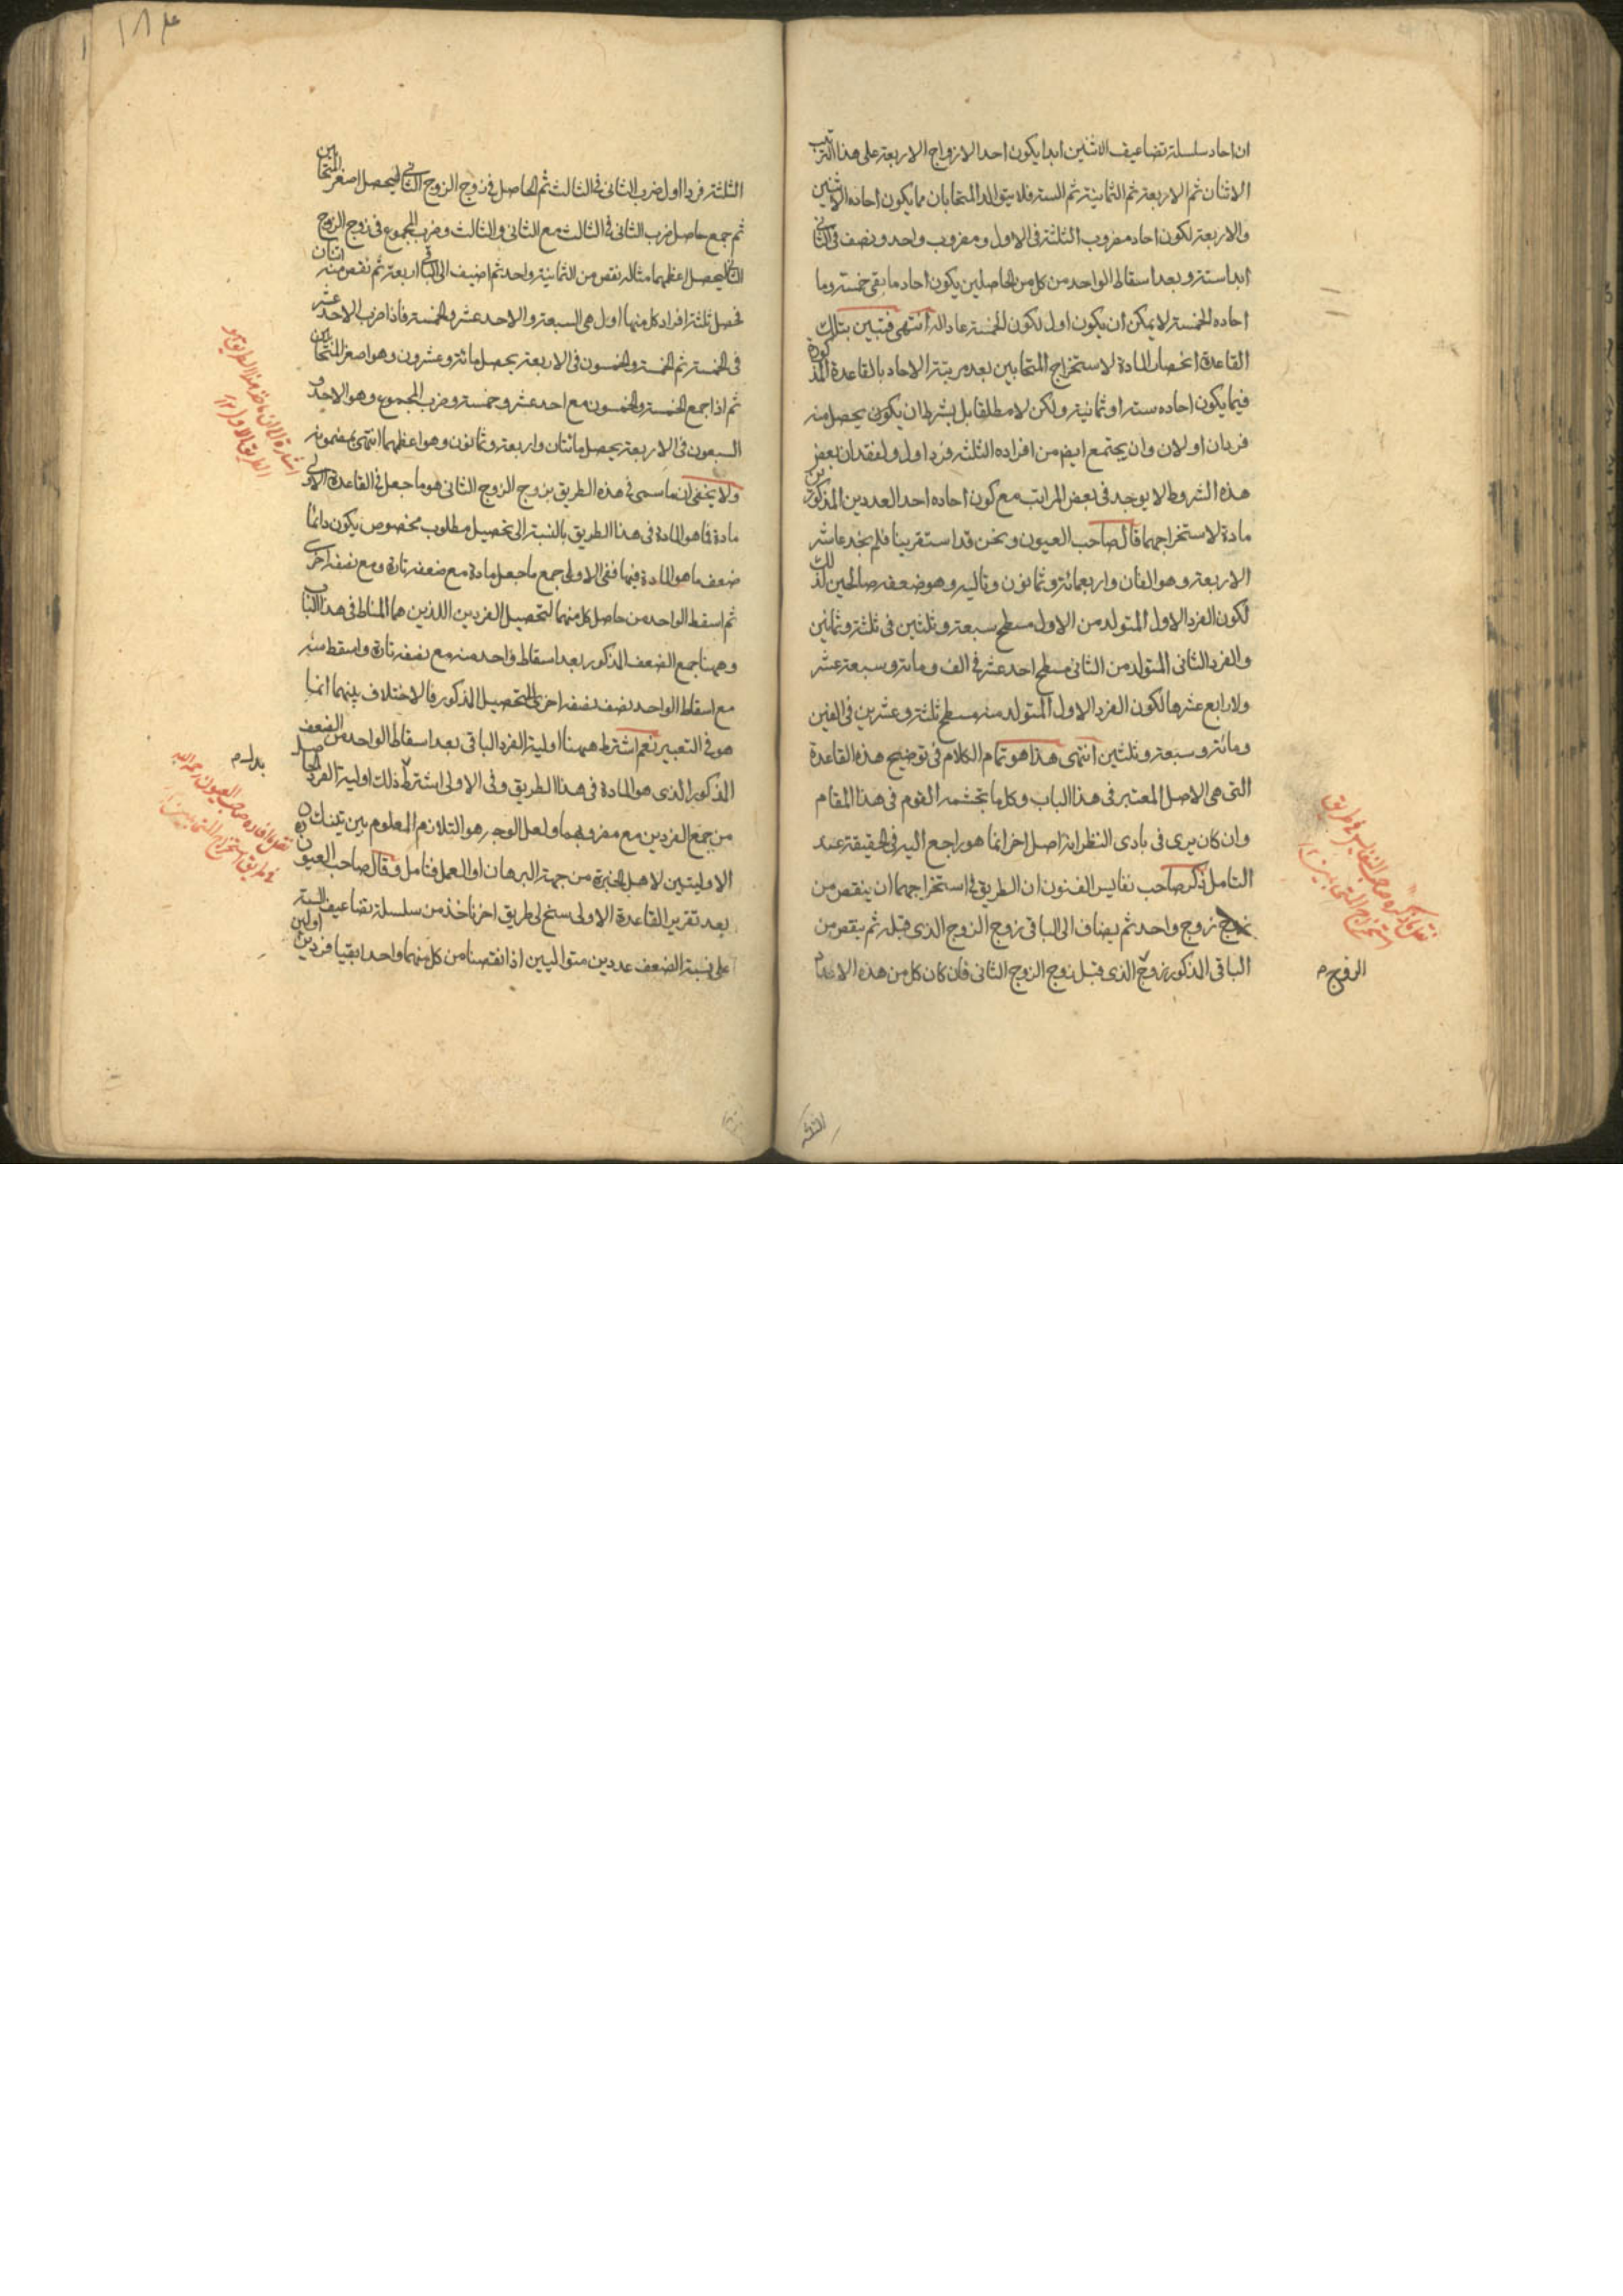 ان احاد سلسلة تضاعيف الاثنين ابدا يكون احد الازواج الاربعة على هذا الترتيب
الاثنان ثم الاربعة ثم الثمانية ثم الستة فلا يتولد المتحابان مما يكون احاده الاثنين
والاربعة لكون احاد مضروب الثلثة فى الاول ومضروب واحد ونصف فى الثانى
ابدا ستة وبعد اسقاط الواحد من كل من الحاصلين يكون احاد ما بقى خمسة وما
احاده الخمسة لا يمكن ان يكون اول لكون الخمسة عادا له انتهى فتبين بتلك
القاعدة انحصار المادة لاستخراج المتحابين بعد مرتبة الاحاد بالقاعدة المذكورة
فيما يكون احاده ستة او ثمانية ولكن لا مطلقا بل بشرط ان يكون يحصل منه
فردان اولان وان يجتمع ايضا من افراده الثلثة فرد اول ولفقدان بعض
هذه الشروط لا يوجد فى بعض المراتب مع كون احاده احد العددين المذكورين
مادة لاستخراجهما قال صاحب العيون ونحن قد استقرينا فلم نجد عاشر
الاربعة وهو الفان واربعمائة وثمانون وتاليه وهو ضعفه صالحين لذلك
لكون الفرد الاول المتولد من الاول مسطح سبعة وثلثين فى ثلثة وثمانين
والفرد الثانى المتولد من الثانى مسطح احد عشر فى الف ومائة وسبعة عشر
ولا رابع عشرها لكون الفرد الاول المتولد منه مسطح ثلثة وعشرين فى الفين
ومائة وسبعة وثلثين انتهى هذا هو تمام الكلام فى توضيح هذه القاعدة
التى هى الاصل المعتبر فى هذا الباب وكلما تجشمه القوم فى هذا المقام
وان كان يرى فى بادى النظر انه اصل اخر انما هو راجع اليه فى الحقيقة عند
التامل ذكر صاحب نفايس الفنون ان الطريق فى استخراجهما ان ينقص من
زوج زوج واحد ثم يضاف الى الباقى زوج الزوج الذى قبله ثم ينقص من
الباقى المذكور زوج الذى قبل زوج الزوج الثانى فان كان كل من هذه الاعداد
الزوج م
نقل ما ذكره صاحب النفايس فى طريق
استخراج المتحابين ١٢
الثلثة
١٨٤
الثلثة فردا اول ضرب الثانى فى الثالث ثم الحاصل فى زوج الزوج الثانى ليحصل اصغر المتحابين
ثم جمع حاصل ضرب الثانى فى الثالث مع الثانى والثالث وضرب المجموع فى زوج الزوج
الثانى ليحصل اعظمهما مثاله نقص من الثمانية واحد ثم اضيف الى الباقى اربعة ثم نقص منه اثنان
فحصل ثلثة افراد كل منها اول هى السبعة والاحد عشر والخمسة فاذا ضرب الاحد عشر
فى الخمسة ثم الخمسة والخمسون فى الاربعة يحصل مائة وعشرون وهو اصغر المتحابين
ثم اذا جمع الخمسة والخمسون مع احد عشر وخمسة وضرب المجموع وهو الاحد و
السبعون فى الاربعة يحصل مائتان واربعة وثمانون وهو اعظمهما انتهى بمضمونه
ولا يخفى ان ما سمى فى هذه الطريق بزوج الزوج الثانى هو ما جعل فى القاعدة الاولى
مادة فما هو المادة فى هذا الطريق بالنسبة الى تحصيل مطلوب مخصوص يكون دائما
ضعف ما هو المادة فيها ففى الاولى جمع ما جعل مادة مع ضعفه تارة ومع نصفه اخرى
ثم اسقط الواحد من حاصل كل منهما لتحصيل الفردين اللذين هما المناط فى هذا الباب
وههنا جمع الضعف المذكور بعد اسقاط واحد منه مع نصفه تارة واسقط منه
مع اسقاط الواحد نصف نصفه اخرى لتحصيل المذكور فالاختلاف بينهما انما
هو فى التعبير نعم اشترط ههنا اولية الفرد الباقى بعد اسقاط الواحد من الضعف
المذكور الذى هو المادة فى هذا الطريق وفى الاولى اشترط ذلك اولية الفرد الحاصل
من جمع الفردين مع مضروبهما ولعل الوجه هو التلازم المعلوم بين تينك
الاوليتين لاهل الخبرة من جهة البرهان او العمل فتامل وقال صاحب العيون
بعد تقرير القاعدة الاولى سنح لى طريق اخر ناخذ من سلسلة تضاعيف الستة
على نسبة الضعف عددين متواليين اذا نقصنا من كل منهما واحدا بقيا فردين اولين
اشارة الى ان ما ذكر هذا الطريق هو
الطريق الاول ١٢
بدل م
نقل ما افاده صاحب العيون رحمه الله
فى طريق استخراج المتحابين ١٢